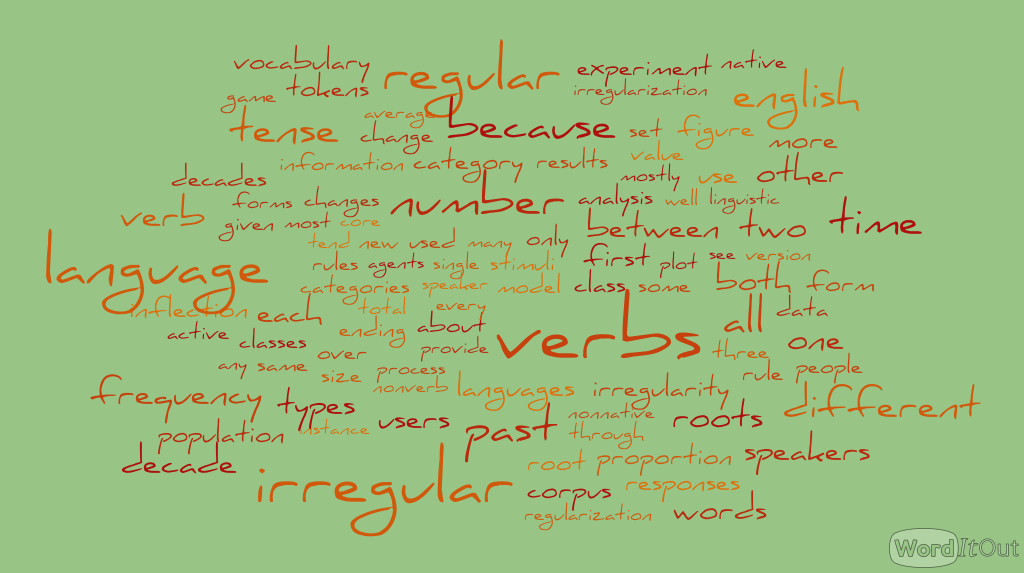 vocabulary regular experiment native
game tokens irregularization english
average
tense change because set figure more
information category results value
decades mostly use other
forms changes number analysis well linguistic
verb given most core between two time
tend new used many only
language rules agents single stimuli first plot see version
categories speaker model class some both form
inflection each total every all data
active classes ending about verbs
over provide three one
any same size process rule people
nonverb languages irregularity
frequency types nonnative different
population instance users past through roots
decade root proportion speakers
irregular corpus responses
regularization words
WordItOut